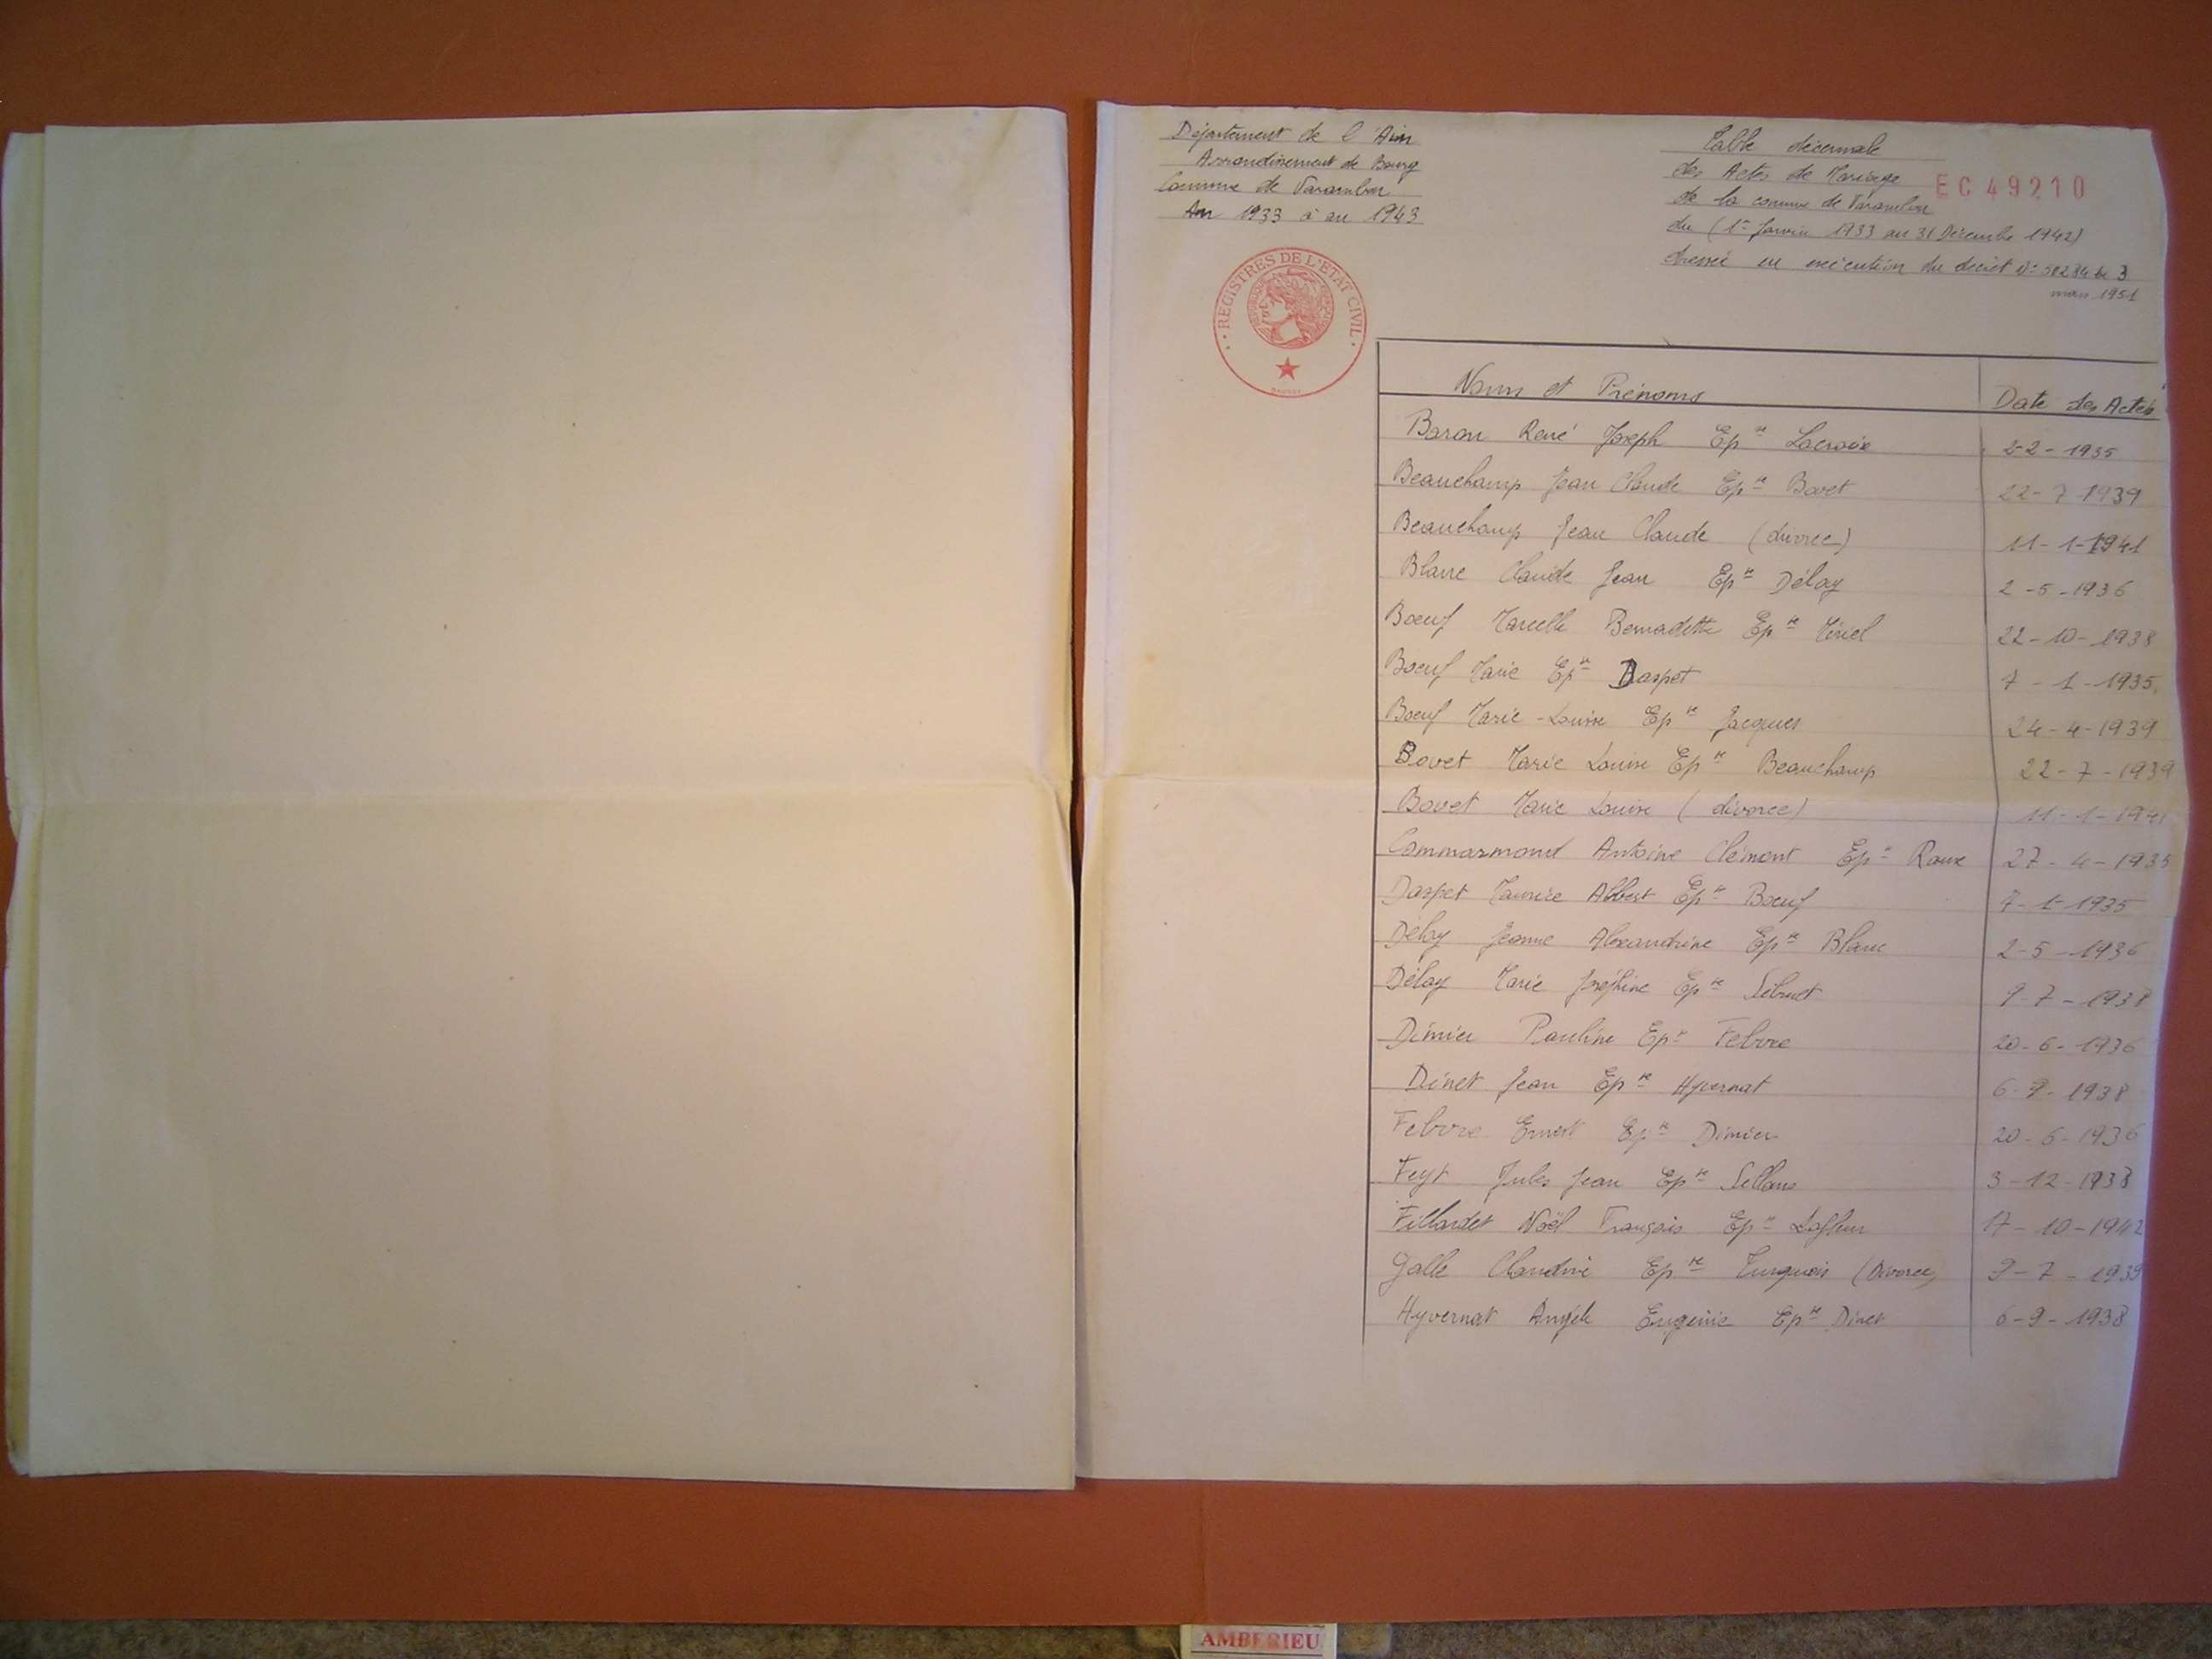 Département de l'Ain
Arrondissement de Bourg
Commune de Varambon
An 1933 à an 1943
Table décennale
des Actes de Mariage
EC49210
de la commune de Varambon
du (1er Janvier 1933 au 31 Décembre 1942)
dressée en exécution du décret N° 51284 du 3
mars 1951
REGISTRES DE L'ETAT CIVIL
Noms et Prénoms Date des Actes
Baron René Joseph Epse Lacroix 2-2-1935
Beauchamp Jean Claude Epse Bovet 22-7-1939
Beauchamp Jean Claude (divorce) 11-1-1941
Blanc Claude Jean Epse Délay 2-5-1936
Boeuf Marcelle Bernadette Epse 22-10-1938
Boeuf Marie Epse Daspet 7-1-1935
Boeuf Marie-Louise Epse Jacques 24-4-1939
Bovet Marie Louise Epse Beauchamp 22-7-1939
Bovet Marie Louise (divorce) 11-1-1941
Commarmond Antoine Clément Epse Roux 27-4-1935
Daspet Maurice Albert Epse Boeuf 7-1-1935
Délay Jeanne Alexandrine Epse Blanc 2-5-1936
Délay Marie Joséphine Epse 9-7-1938
Dimier Pauline Epse Febvre 20-6-1936
Dinet Jean Epse Hyvernat 6-9-1938
Febvre Ernest Epse Dimier 20-6-1936
Feyt Jules Jean Epse 3-12-1938
Fillardet Noël François Epse Lafleur 17-10-1942
Galle Claudine Epse Turquois (Divorce) 9-7-1939
Hyvernat Angèle Eugénie Epse Dinet 6-9-1938
AMBERIEU